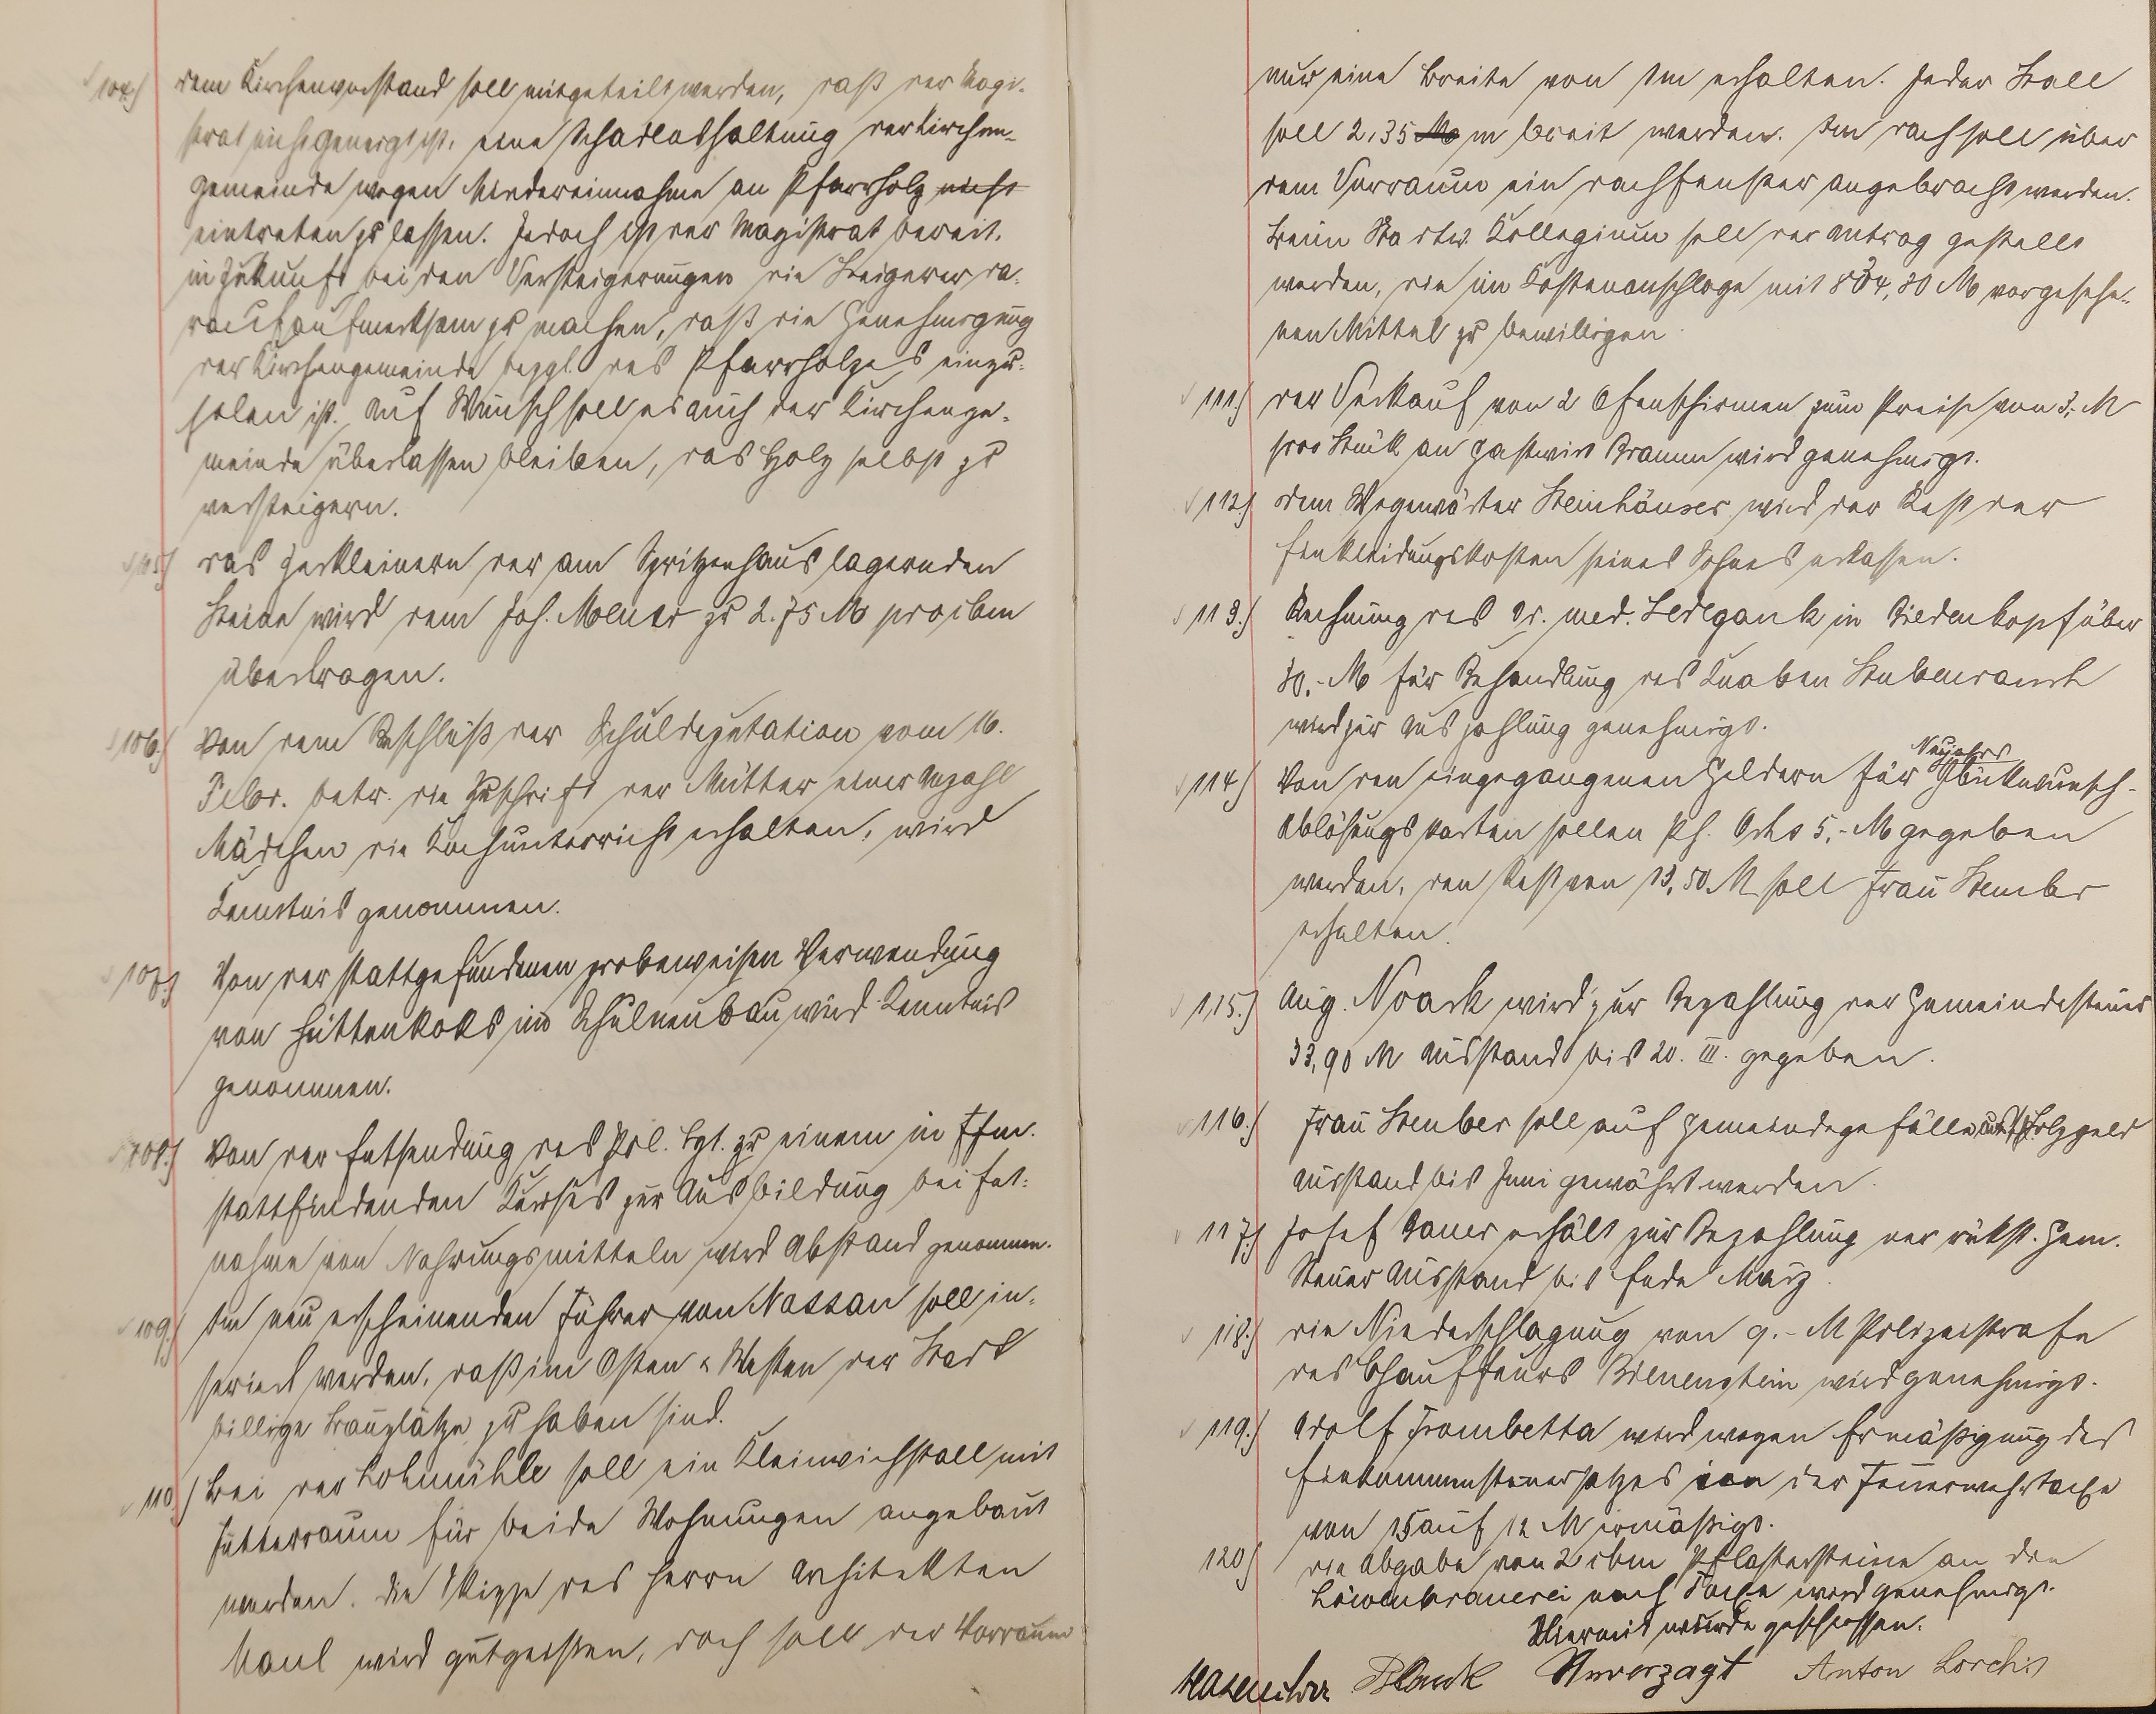 104.) Dem Kirchenvorstand soll mitgeteilt werden, daß der Magi-
strat nicht geneigt ist, eine Schadloshaltung der Kirchen-
gemeinde wegen Mindereinnahme an Pfarrholz nicht
eintreten zu lassen. Jedoch ist der Magistrat bereit,
in Zukunft bei den Versteigerungen die Steigerer da-
rauf aufmerksam zu machen, daß die Genehmigung
der Kirchengemeinde bezgl. des Pfarrholzes einzu-
holen ist. Auf Wunsch soll es auch der Kirchenge-
meinde überlassen bleiben, das Holz selbst zu
versteigern.
105.) Das Zerkleinern der am Spritzenhaus lagernden
Steine wird dem Joh. Molner zu 2.75 M pro cbm
übertragen.
106.) Von dem Beschluß der Schuldeputation vom 16.
Febr. betr. die Zuschrift der Mütter einer Anzahl
Mädchen die Kochunterricht erhalten, wird
Kenntnis genommen.
107.) Von der stattgefundenen probeweisen Verwendung
von Hüttenkoks im Schulneubau wird Kenntnis
genommen.
108.) Von der Entsendung des Pol. Sgt. zu einem in Ffm.
stattfindenden Kurses zur Ausbildung bei Ent-
nahme von Nahrungsmitteln wird Abstand genommen.
109.) Im neu erscheinenden Führer von Nassau soll in-
seriert werden, daß im Osten & Westen der Stadt
billige Bauplätze zu haben sind.
110.) Bei der Lohmühle soll ein Kleinviehstall mit
Futterraum für beide Wohnungen angebaut
werden. Die Skizze des Herrn Architekten
Maul wird gutgeheißen, doch soll der Vorraum
nur eine Breite von 1m erhalten. Jeder Stall
soll 2,35 M m breit werden. Im Dach soll über
dem Vorraum ein Dachfenster angebracht werden.
Beim Stadtv. Kollegium soll der Antrag gestellt
werden, die im Kostenanschlage mit 804,30 M vorgesehe-
nen Mittel zu bewilligen.
111.) Der Verkauf von 2 Ofenschirmen zum Preise von 3,- M
pro Stück an Gastwirt Braun wird genehmigt.
112.) Dem Wegewärter Steinhäuser wird der Rest der
Einkleidungskosten seines Sohnes erlassen.
113.) Rechnung des Dr. med. Seelgank in Biedenkopf über
30,- M für Behandlung des Knaben Stubenrauch
wird zur Auszahlung genehmigt.
114.) Von den eingegangenen Geldern für Neujahrs Glückwunsch-
Ablösungskarten sollen Ph. Orth 5,- M gegeben
werden, den Rest von 13,50 M soll Frau Steuber
erhalten.
115.) Aug. Noack wird zur Bezahlung der Gemeindesteuer
33,90 M Ausstand bis 20. III. gegeben.
116.) Frau Steuber soll auf Gemeindegefälle und Holzgeld
Ausstand bis Juni gewährt werden.
117.) Josef Bauer erhält zur Bezahlung der rückst. Gem.
Steuer Ausstand bis Ende März.
118.) Die Niederschlagung von 9.- M Polizeistrafe
des Chauffeurs Bienenstein wird genehmigt.
119.) Adolf Trombetta wird wegen Ermäßigung des
Einkommensteuersatzes von der Feuerwehrtaxe
von 15 auf 12 M ermäßigt.
120.) Die Abgabe von 2 cbm Pflastersteine an die
Löwenbrauerei nach Taxe wird genehmigt.
Hiermit wurde geschlossen.
Plack Unverzagt Anton Lorch